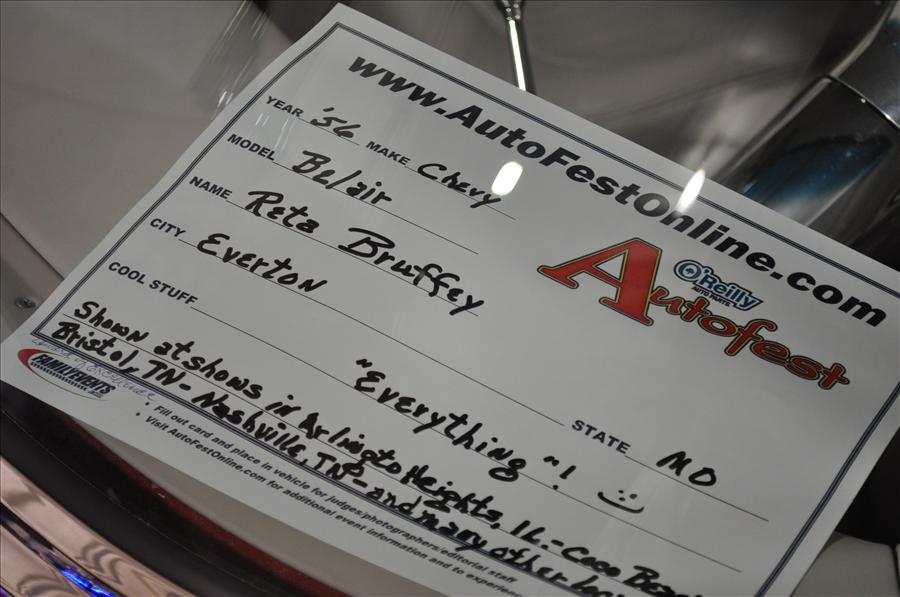 www.AutoFestOnline.com
YEAR '56 MAKE Chevy
MODEL Belair
O'Reilly
AUTO PARTS
Autofest
NAME Reta Bruffey
CITY Everton STATE MO
COOL STUFF "Everything"! :)
Shown at shows in Arlingto Heights, IL.- Coco Beac
Bristol, TN- Nashville, TN- and many other
FAMILY EVENTS
• Fill out card and place in vehicle for judges/photographers/editorial staff
• Visit AutoFestOnline.com for additional event information and to experience